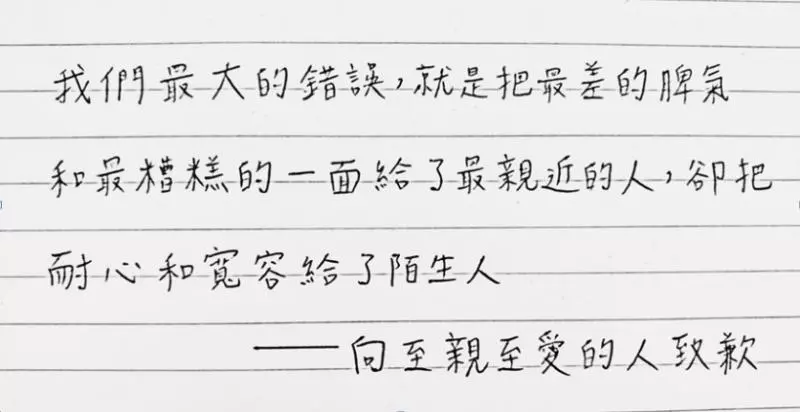 我們最大的錯誤,就是把最差的脾氣
和最糟糕的一面給了最親近的人,卻把
耐心和寬容給了陌生人
——向至親至愛的人致歉